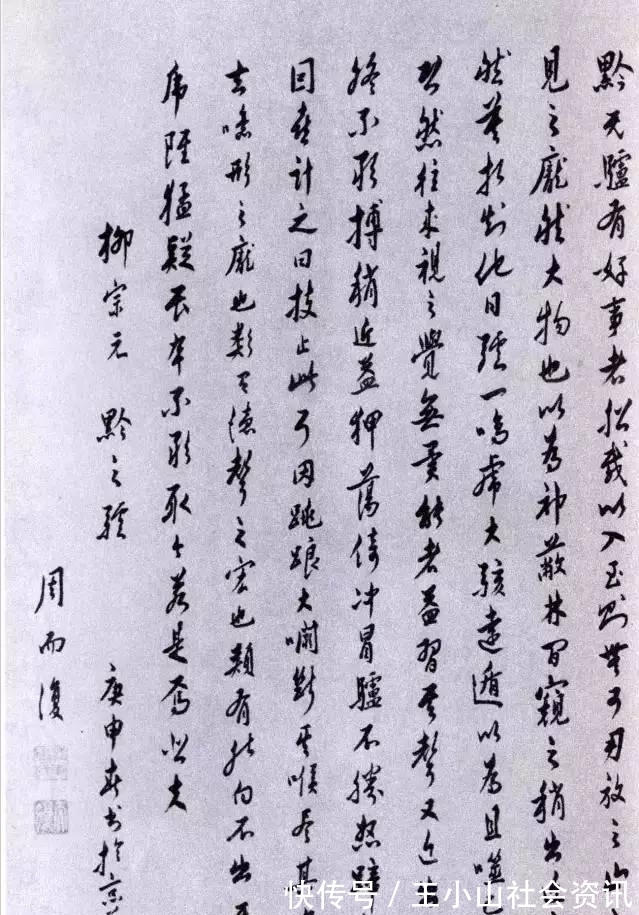 黔无驢有好事者船载以入至则無可用放之山
見之龐然大物也以為神蔽林间窺之稍出
然莫相知他日驴一鳴虎大駭遠遁以為且噬
然往来視之覺無異能者益習其聲又近
終不敢搏稍近益狎蕩倚冲冒驢不勝怒蹄
因喜計之曰技止此耳因跳踉大㘎斷其喉尽其
去噫形之龐也類有德聲之宏也類有能向不出其
虎雖猛疑畏卒不敢取今若是焉悲夫
柳宗元 黔之驴
庚申春书於京
周而復
快传号/王小山社会资讯